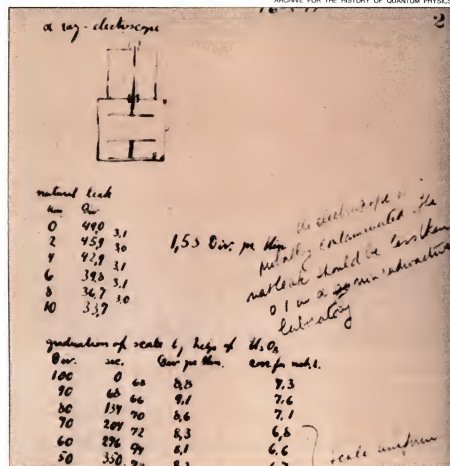 ARCHIVE FOR THE HISTORY OF QUANTUM PHYSICS
2
α ray-electroscope
natural leak
Min. Div.
0 49,0
3,1
2 45,9
3,0
4 42,9
3,1
6 39,8
3,1
8 36,7
3,0
10 33,7
1,53 Div. per Min.
the electroscope is
contaminated. The
nat leak should be less than
0 1 in a non radioactive
laboratory
graduation of scale by help of U3O8
Div. sec. Div per Min. corr. for nat. l.
100 0 68 8,8 7.3
90 68 66 9,1 7.6
80 134 70 8,6 7.1
70 204 72 8,3 6,8
60 276 74 8,1 6,6
50 350
scale uniform